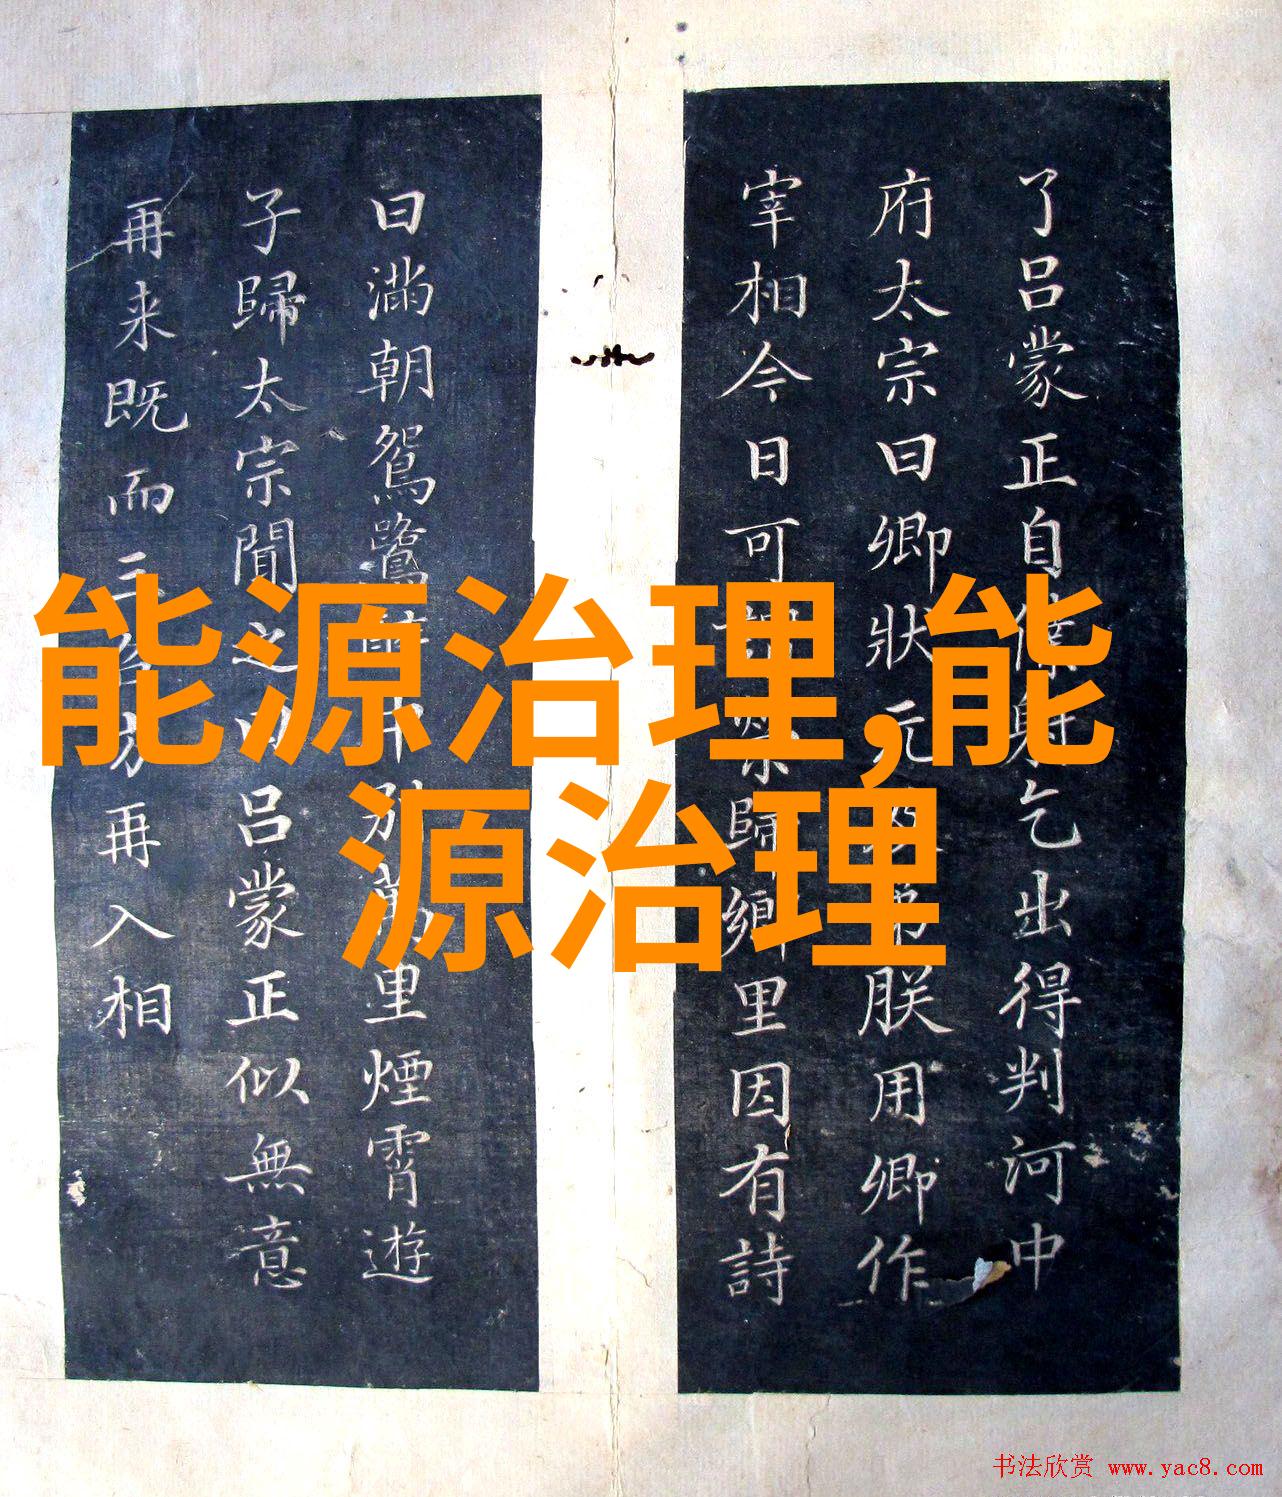 了呂蒙正自身乞出得判河中
府太宗曰卿狀元第朕用卿作
宰相今日可歸鄉里因有詩
曰滿朝鴛鷺中別里煙霄遊
子歸太宗聞之曰呂蒙正似無意
再来既而三再入相
能源治理,能
源治理
书法欣赏 www.yac8.com